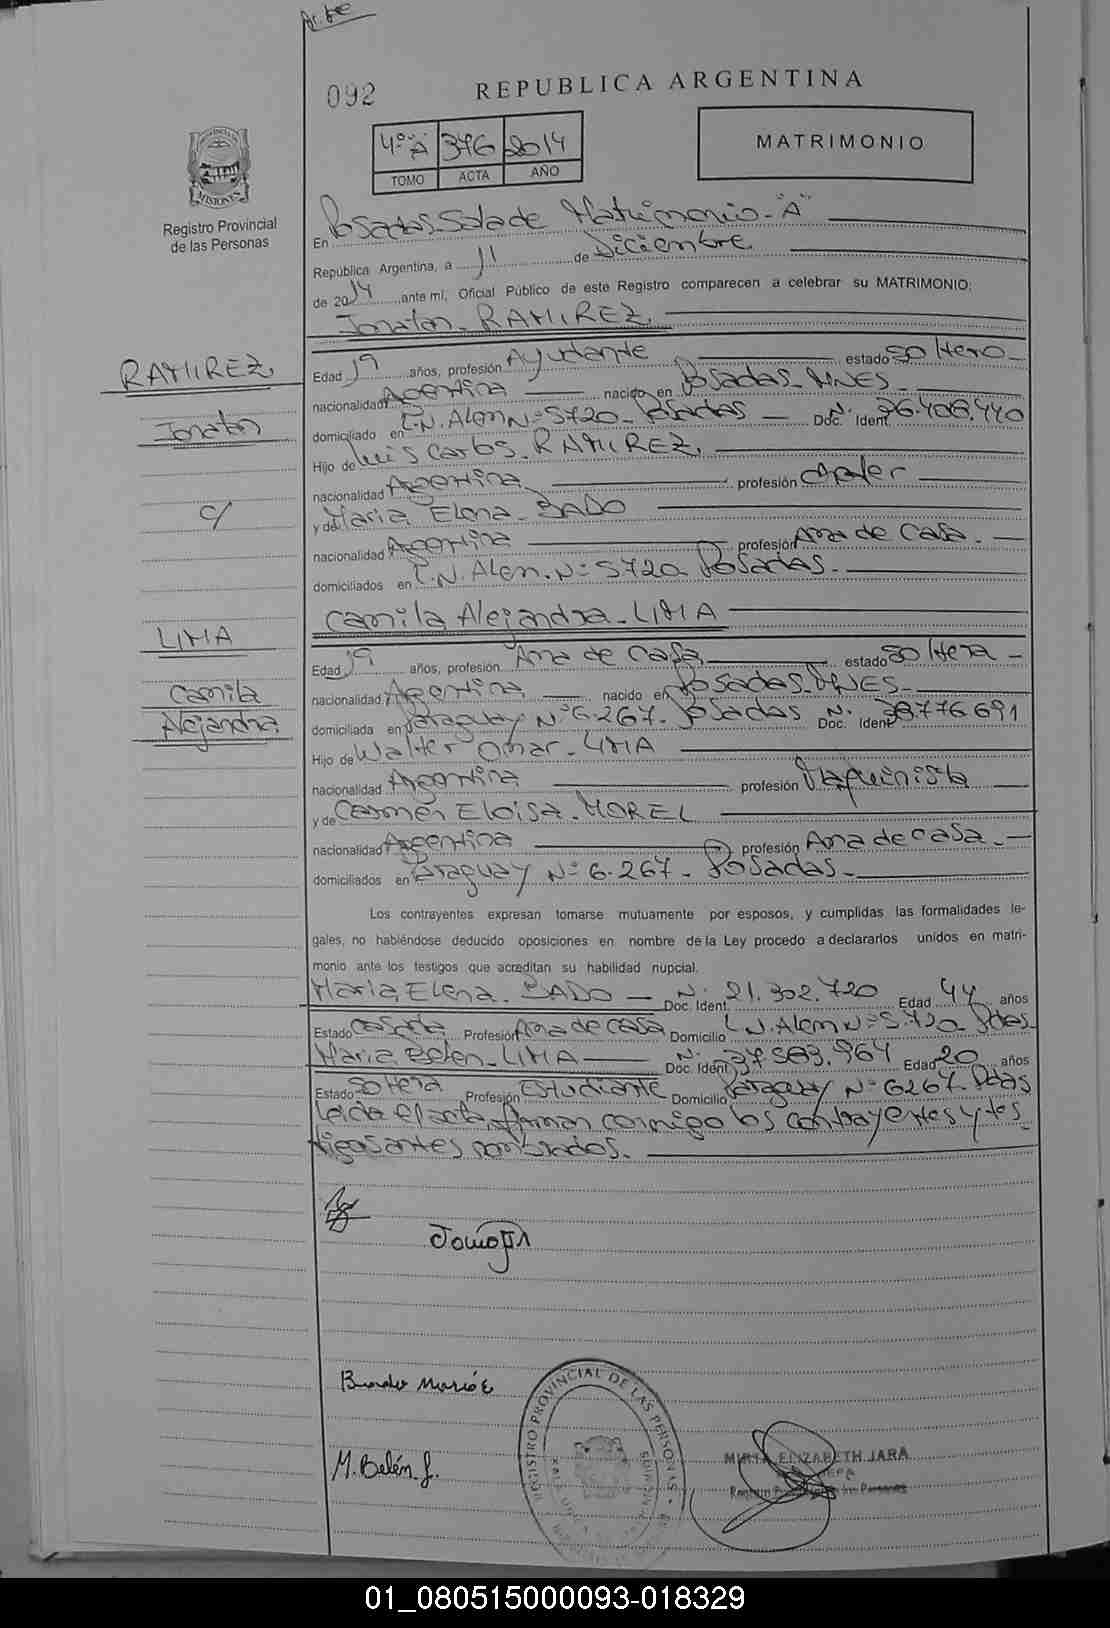 092
REPUBLICA ARGENTINA
4º "A" 376 2014
TOMO ACTA AÑO
MATRIMONIO
MISIONES
Registro Provincial
de las Personas
En Posadas Sala de Matrimonio - "A"
República Argentina, a 11 de Diciembre
de 2014 ante mí, Oficial Público de este Registro comparecen a celebrar su MATRIMONIO:
Jonatan - RAMIREZ
RAMIREZ
Jonatan
c/
LIMA
Camila
Alejandra
Edad 19 años, profesión Ayudante estado soltero
nacionalidad Argentina nacido en Posadas - MNES -
domiciliado en L.N. Alem Nº 5720 - Posadas - Doc. Ident. Nº 36.408.440
Hijo de Luis Carlos - RAMIREZ
nacionalidad Argentina profesión Chofer
y de Maria Elena - BADO
nacionalidad Argentina profesión Ama de Casa -
domiciliados en L.N. Alem - Nº 5720 Posadas -
Camila Alejandra - LIMA
Edad 19 años, profesión Ama de Casa estado soltera -
nacionalidad Argentina nacido en Posadas - MNES -
domiciliada en Paraguay Nº 6.267 - Posadas Doc. Ident. Nº 38.776.691
Hijo de Walter Omar - LIMA
nacionalidad Argentina profesión Maquinista
y de Carmen Eloisa - MOREL
nacionalidad Argentina profesión Ama de casa -
domiciliados en Paraguay Nº 6.267 - Posadas -
Los contrayentes expresan tomarse mutuamente por esposos, y cumplidas las formalidades le-
gales, no habiéndose deducido oposiciones en nombre de la Ley procedo a declararlos unidos en matri-
monio ante los testigos que acreditan su habilidad nupcial.
Maria Elena - BADO - Doc. Ident. Nº 21.302.720 Edad 44 años
Estado casada Profesión Ama de casa Domicilio L.N. Alem Nº 5.720 Pdas
Maria Belen - LIMA Doc. Ident. Nº 37.583.964 Edad 20 años
Estado soltera Profesión Estudiante Domicilio Paraguay Nº 6267 - Pdas
Leida el acta, firman conmigo los contrayentes y tes-
tigos antes nombrados.
M. Belén L.
REGISTRO PROVINCIAL DE LAS PERSONAS
MIRTA ELIZABETH JARA
Registro Provincial de las Personas
01_080515000093-018329